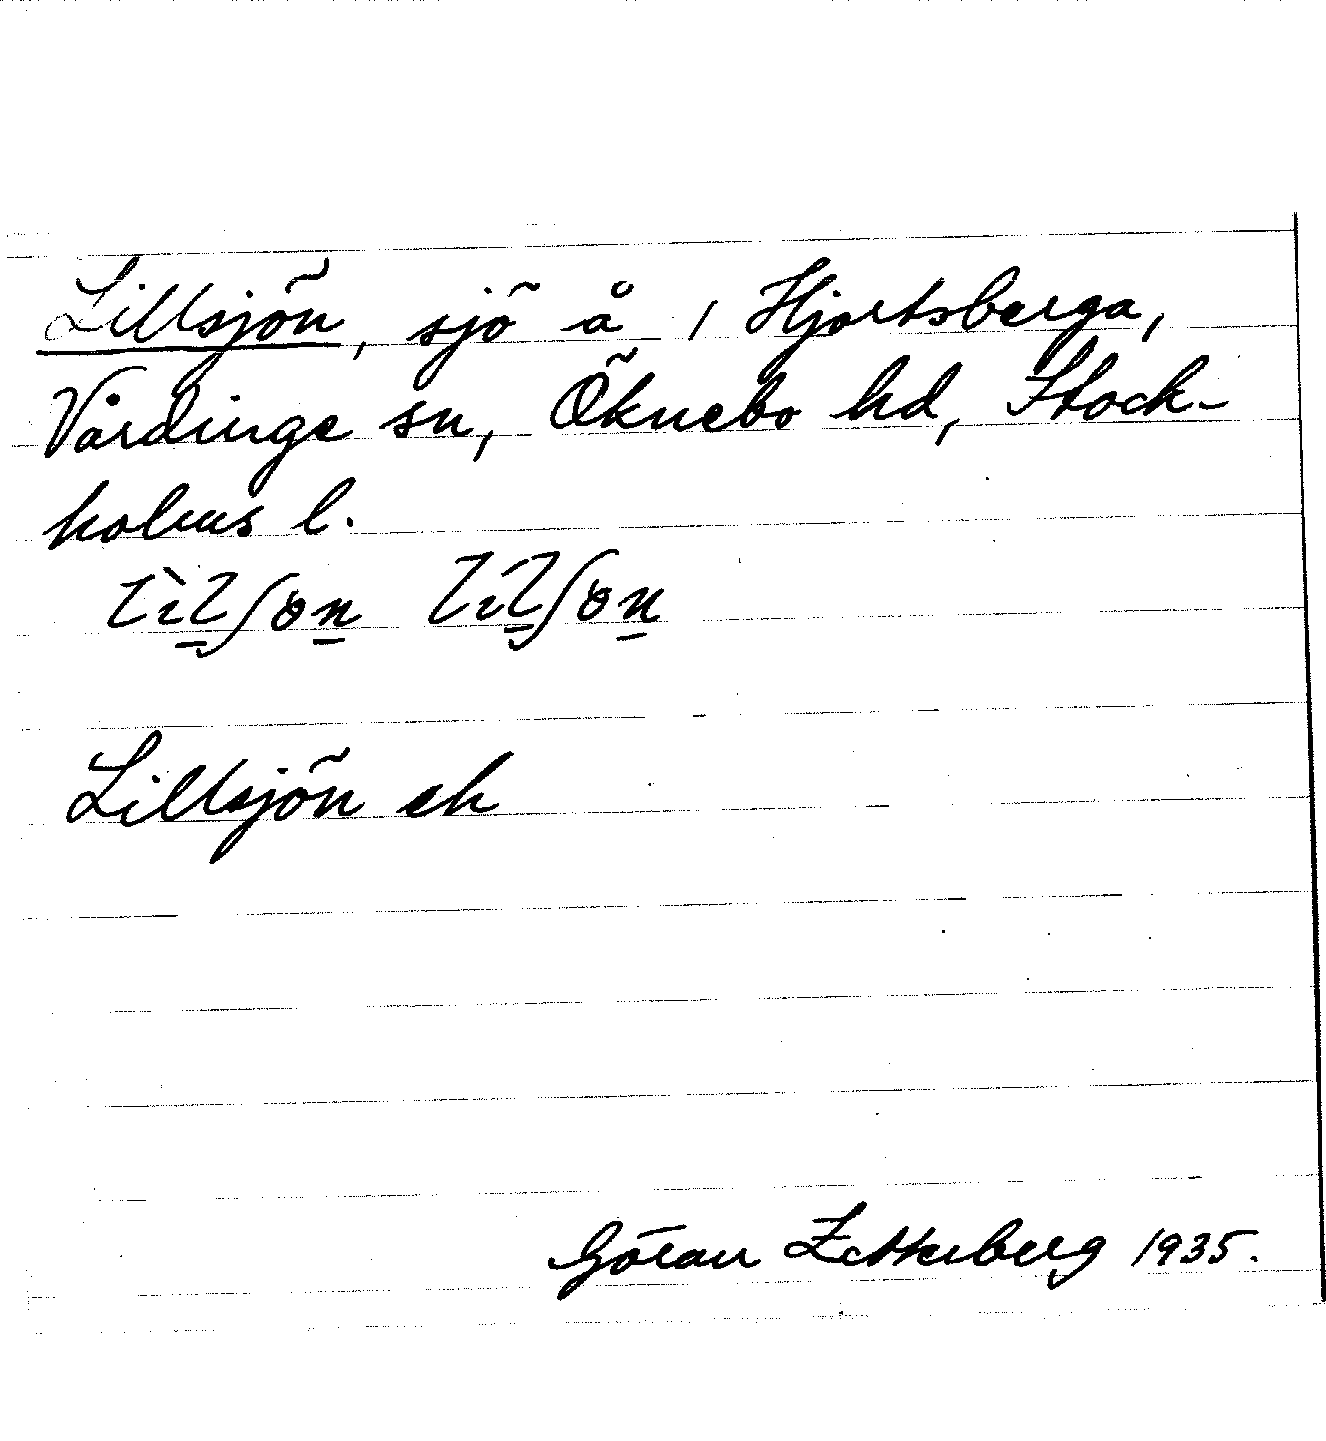 Lillsjön, sjö å / Hjortsberga,
Vårdinge sn, Öknebo hd, Stock-
holms l.
Lillsjön ek
Göran Zetterberg 1935.